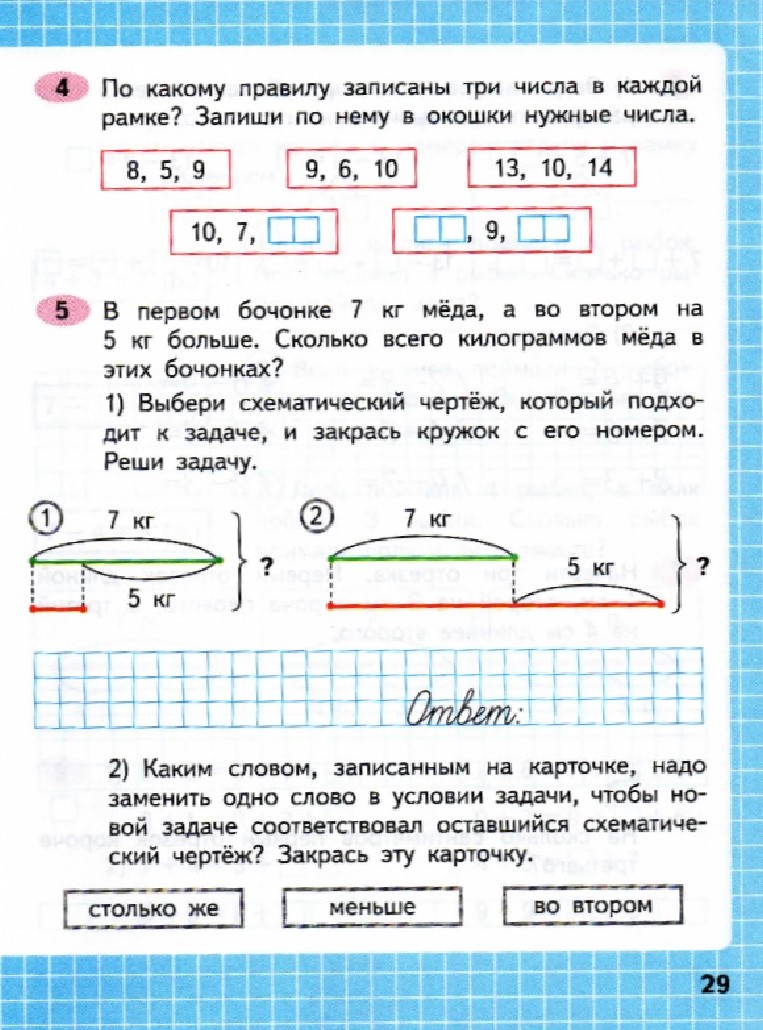 4 По какому правилу записаны три числа в каждой
рамке? Запиши по нему в окошки нужные числа.
8, 5, 9
9, 6, 10
13, 10, 14
10, 7,
, 9,
5 В первом бочонке 7 кг мёда, а во втором на
5 кг больше. Сколько всего килограммов мёда в
этих бочонках?
1) Выбери схематический чертёж, который подхо-
дит к задаче, и закрась кружок с его номером.
Реши задачу.
1 7 кг
5 кг
?
2 7 кг
5 кг
?
Ответ:
2) Каким словом, записанным на карточке, надо
заменить одно слово в условии задачи, чтобы но-
вой задаче соответствовал оставшийся схематиче-
ский чертёж? Закрась эту карточку.
столько же
меньше
во втором
29